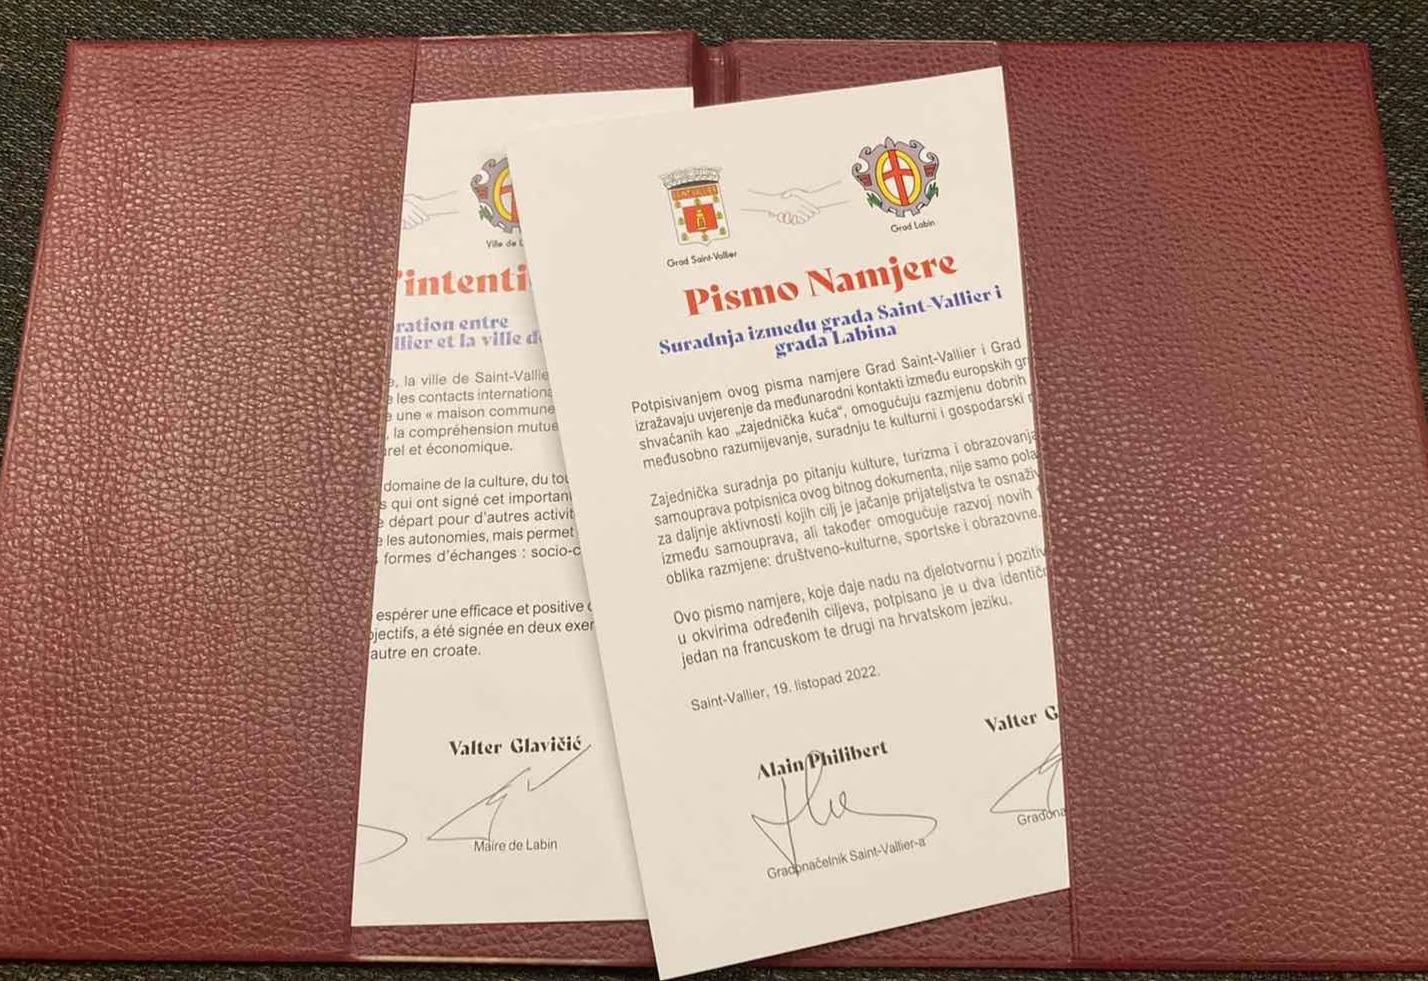 Ville de
'intenti
ration entre
llier et la ville d
, la ville de Saint-Vallie
les contacts internationa
une « maison commune
, la compréhension mutue
rel et économique.
domaine de la culture, du tou
s qui ont signé cet important
départ pour d'autres activit
les autonomies, mais permet
formes d'échanges : socio-c
espérer une efficace et positive
jectifs, a été signée en deux exer
autre en croate.
Valter Glavičić
Maire de Labin
SAINT VALLIER
Grad Saint-Vallier
Grad Labin
Pismo Namjere
Suradnja između grada Saint-Vallier i
grada Labina
Potpisivanjem ovog pisma namjere Grad Saint-Vallier i Grad
izražavaju uvjerenje da međunarodni kontakti između europskih gr
shvaćanih kao „zajednička kuća“, omogućuju razmjenu dobrih
međusobno razumijevanje, suradnju te kulturni i gospodarski
Zajednička suradnja po pitanju kulture, turizma i obrazovanja
samouprava potpisnica ovog bitnog dokumenta, nije samo pola
za daljnje aktivnosti kojih cilj je jačanje prijateljstva te osnaživ
između samouprava, ali također omogućuje razvoj novih
oblika razmjene: društveno-kulturne, sportske i obrazovne.
Ovo pismo namjere, koje daje nadu na djelotvornu i pozitiv
u okvirima određenih ciljeva, potpisano je u dva identičn
jedan na francuskom te drugi na hrvatskom jeziku.
Saint-Vallier, 19. listopad 2022.
Alain Philibert
Valter G
Gradonačelnik Saint-Vallier-a
Gradona